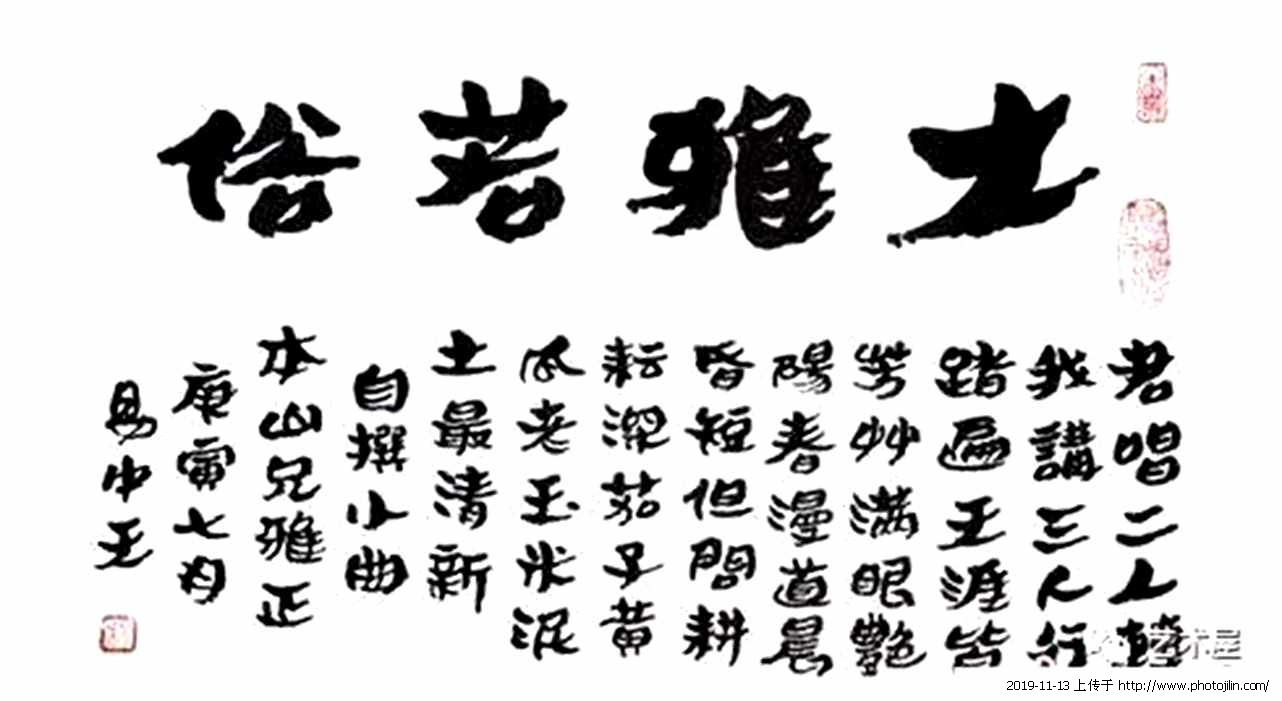 大雅若俗
君唱二人轉
我講三人行
踏遍天涯皆
芳艸滿眼艷
陽春漫道晨
昏短但問耕
耘深茄子黄
瓜老玉米泥
土最清新
自撰小曲
本山兄雅正
庚寅七月
易中天
艺术屋
2019-11-13 上传于 http://www.photojilin.com/